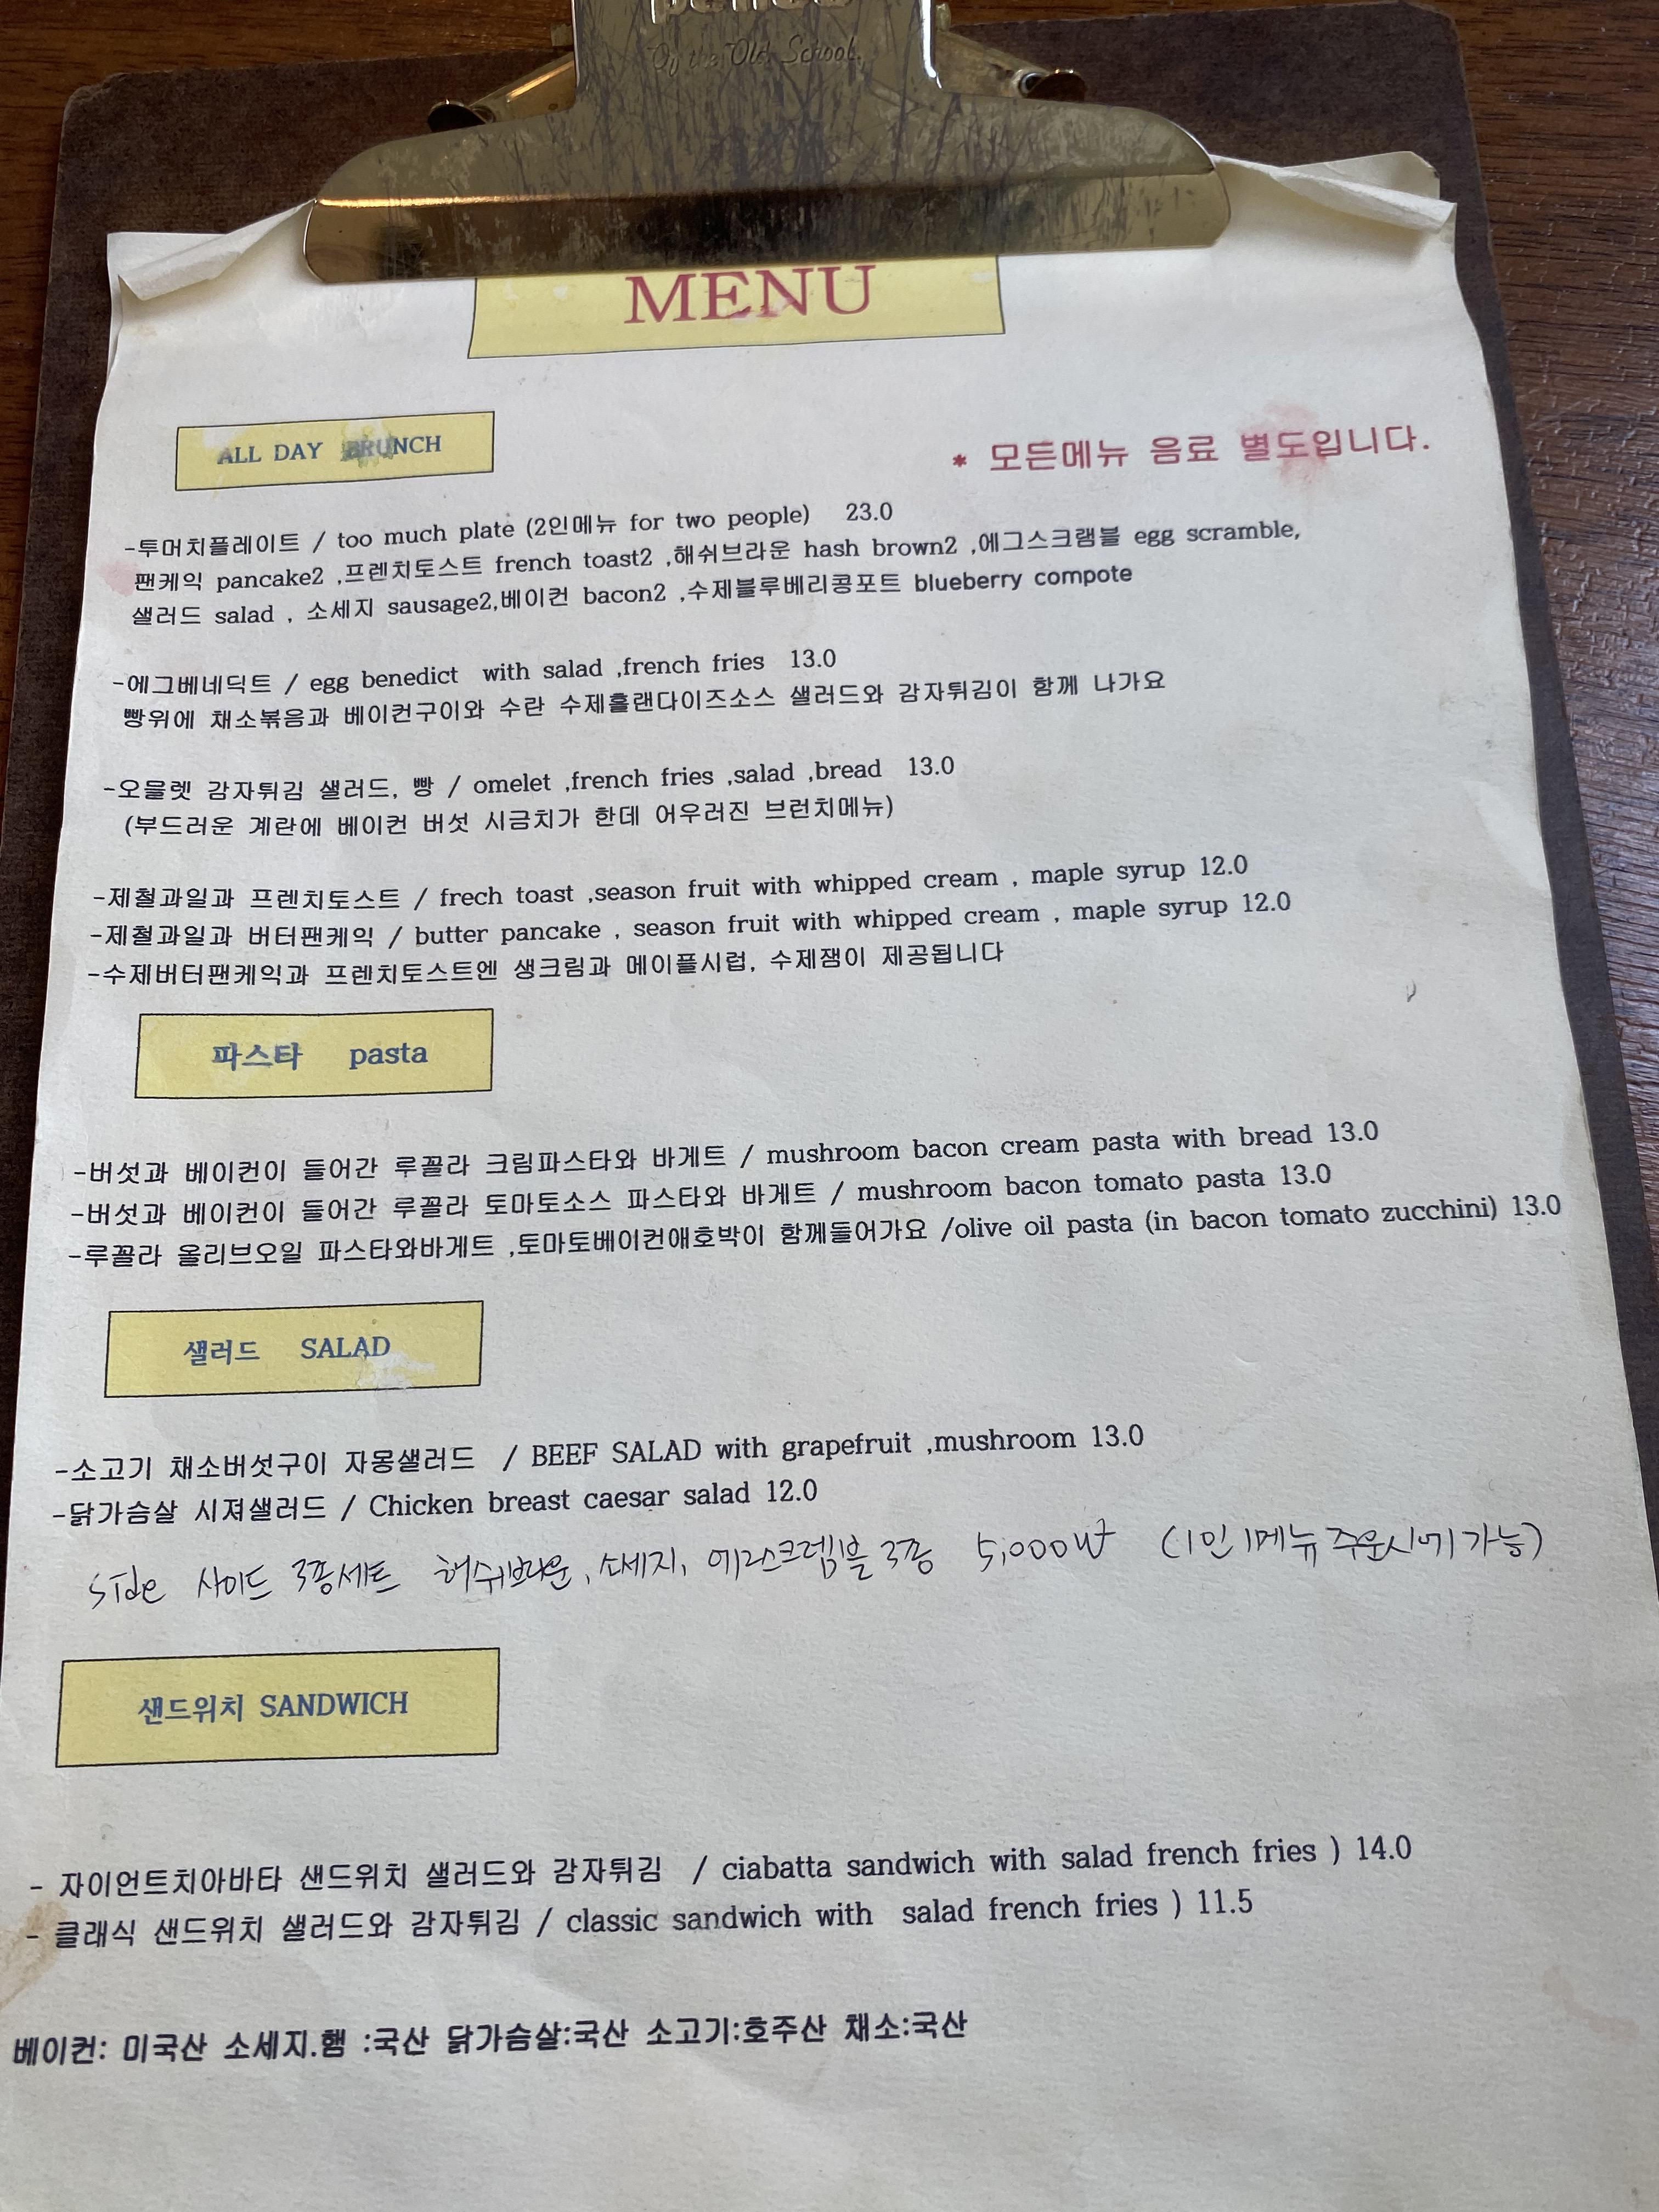 Of the Old School.
MENU
ALL DAY BRUNCH
* 모든메뉴 음료 별도입니다.
-투머치플레이트 / too much plate (2인메뉴 for two people) 23.0
팬케익 pancake2 ,프렌치토스트 french toast2 ,해쉬브라운 hash brown2 ,에그스크램블 egg scramble,
샐러드 salad , 소세지 sausage2,베이컨 bacon2 ,수제블루베리콩포트 blueberry compote
-에그베네딕트 / egg benedict with salad ,french fries 13.0
빵위에 채소볶음과 베이컨구이와 수란 수제홀랜다이즈소스 샐러드와 감자튀김이 함께 나가요
-오믈렛 감자튀김 샐러드, 빵 / omelet ,french fries ,salad ,bread 13.0
(부드러운 계란에 베이컨 버섯 시금치가 한데 어우러진 브런치메뉴)
-제철과일과 프렌치토스트 / frech toast ,season fruit with whipped cream , maple syrup 12.0
-제철과일과 버터팬케익 / butter pancake , season fruit with whipped cream , maple syrup 12.0
-수제버터팬케익과 프렌치토스트엔 생크림과 메이플시럽, 수제잼이 제공됩니다
파스타 pasta
-버섯과 베이컨이 들어간 루꼴라 크림파스타와 바게트 / mushroom bacon cream pasta with bread 13.0
-버섯과 베이컨이 들어간 루꼴라 토마토소스 파스타와 바게트 / mushroom bacon tomato pasta 13.0
-루꼴라 올리브오일 파스타와바게트 ,토마토베이컨애호박이 함께들어가요 /olive oil pasta (in bacon tomato zucchini) 13.0
샐러드 SALAD
-소고기 채소버섯구이 자몽샐러드 / BEEF SALAD with grapefruit ,mushroom 13.0
-닭가슴살 시져샐러드 / Chicken breast caesar salad 12.0
side 사이드 3종세트 해쉬브라운, 소세지, 에그스크램블 3종 5,000₩ (1인 1메뉴 주문시에 가능)
샌드위치 SANDWICH
- 자이언트치아바타 샌드위치 샐러드와 감자튀김 / ciabatta sandwich with salad french fries ) 14.0
- 클래식 샌드위치 샐러드와 감자튀김 / classic sandwich with salad french fries ) 11.5
베이컨: 미국산 소세지.햄 :국산 닭가슴살:국산 소고기:호주산 채소:국산